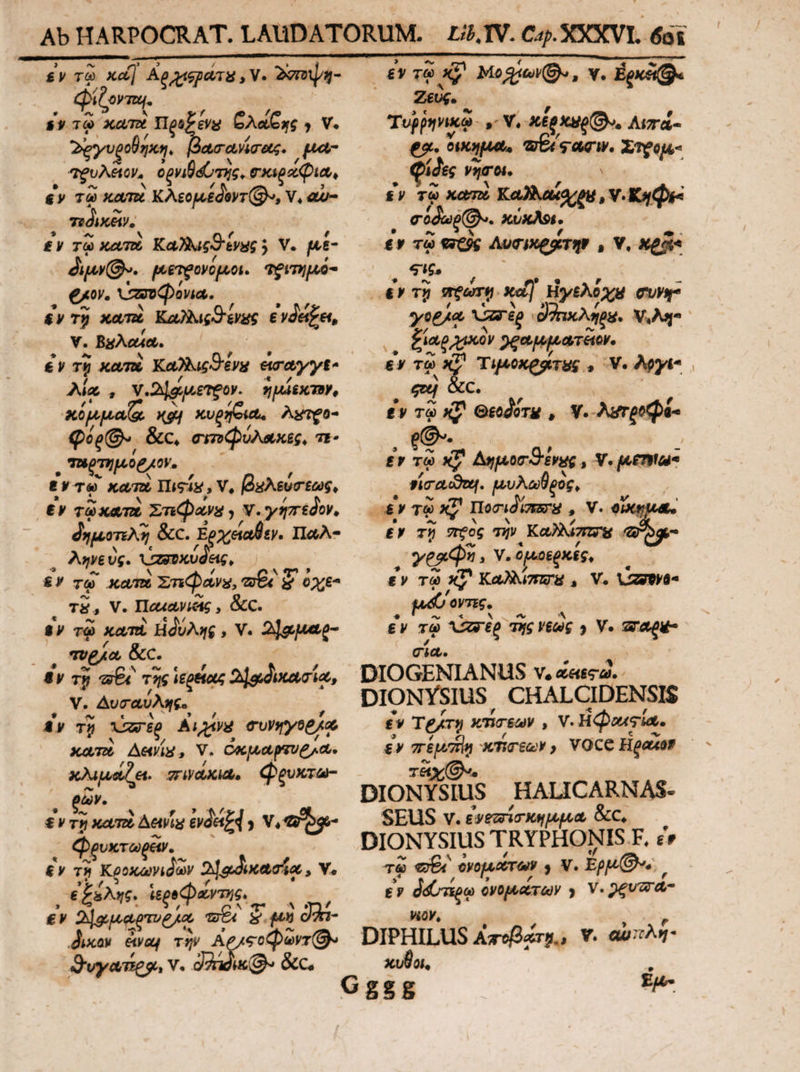 Ab HARPOCRAT. LAUDATORUM. Lib.IV. Cap.XXXVI. 601
ἐν τῷ κατ' Ἀρχιστράτου, V. ἀποψηφίζονται.
ἐν τῷ κατὰ Προξένου βλάβης, V.
ἀργυροθήκη. βασανίσας. ματρυλεῖον. ὀρνιθευτής. σκιράφια.
ἐν τῷ κατὰ Κλεομέδοντος, V. αὐτοδικεῖν.
ἐν τῷ κατὰ Καλλισθένους; V. μέδιμνος. μετρονόμοι. τριτημόριον. ὑποφόνια.
ἐν τῇ κατὰ Καλλισθένους ἐνδείξει,
V. Βουλαία.
ἐν τῇ κατὰ Καλλισθένου εἰσαγγελίᾳ, V. διάμετρον. ἡμίεκτον,
κόμματα καὶ κυρήβια. λουτροφόρος &c. σιτοφύλακες. τεταρτημόριον.
ἐν τῷ κατὰ Πιστίου, V. βουλεύσεως.
ἐν τῷ κατὰ Στεφάνου, V. γήπεδον.
δημοτελῆ &c. Ἑρχείαθεν. Παλληνεύς. ὑποκύδεις.
ἐν τῷ κατὰ Στεφάνου, περὶ τοῦ ὀχετοῦ, V. Παιανιεῖς, &c.
ἐν τῷ κατὰ Ἡδύλης, V. διαμαρτυρία &c.
ἐν τῇ περὶ τῆς ἱερείας διαδικασίᾳ,
V. Δυσαύλης.
ἐν τῇ ὑπὲρ Αἰχίνου συνηγορίᾳ
κατὰ Δεινίου, V. ἐκμαρτυρία.
κλιμάζει. πινάκια. φρυκτωρῶν.
ἐν τῇ κατὰ Δεινίου ἐνδείξει, V. παραφρυκτωρεῖν.
ἐν τῇ Κροκωνιδῶν διαδικασίᾳ, V.
ἐξούλης. ἱεροφάντης.
ἐν διαμαρτυρίᾳ περὶ τοῦ μὴ ἐπίδικον εἶναι τὴν Ἀριστοφῶντος
θυγατέρα, V. ἐπίδικος &c.
ἐν τῷ κατὰ Μοσχίωνος, V. Ἑρκεῖος
Ζεύς.
Τυρρηνικῷ, V. κέρκουρος. Λιπάρα. οἴκημα. περίστασιν. Στρομφίδες νῆσοι.
ἐν τῷ κατὰ Καλλαίσχρου, V. Κηφισόδωρος. κύκλοι.
ἐν τῷ πρὸς Λυσικράτην, V. κρᾶστις.
ἐν τῇ πρώτῃ κατ' Ἡγελόχου συνηγορίᾳ ὑπὲρ ἐπικλήρου. V. Ληξιαρχικὸν γραμματεῖον.
ἐν τῷ κατὰ Τιμοκράτους, V. Λογισταὶ &c.
ἐν τῷ κατὰ Θεοδότου, V. λουτροφόρος.
ἐν τῷ κατὰ Δημοσθένους, V. μετοισαίσθαι. μυλωθρός.
ἐν τῷ κατὰ Ποσιδίππου, V. οἴκημα.
ἐν τῇ πρὸς τὴν Καλλίππου παραγραφῇ, V. ὁμοερκές.
ἐν τῷ κατὰ Καλλίππου, V. ὑπονομεύοντες.
ἐν τῷ ὑπὲρ τῆς νεώς, V. παρουσία.
DIOGENIANUS v. ἀειεστώ.
DIONYSIUS CHALCIDENSIS
ἐν Τρίτῃ κτίσεων, V. Ἡφαιστία.
ἐν πέμπτῃ κτίσεων, voce Ἡραῖον
τεῖχος.
DIONYSIUS HALICARNASSEUS v. ἐνεπίσκημμα &c.
DIONYSIUS TRYPHONIS F. ἐν
τῷ περὶ ὀνομάτων, V. Ἑρμος.
ἐν δευτέρῳ ὀνομάτων, V. χρυπάνιον.
DIPHILUS Ἀποβάτῃ, V. αὐτοληκυθοι.
Gggg
Ἐμ-